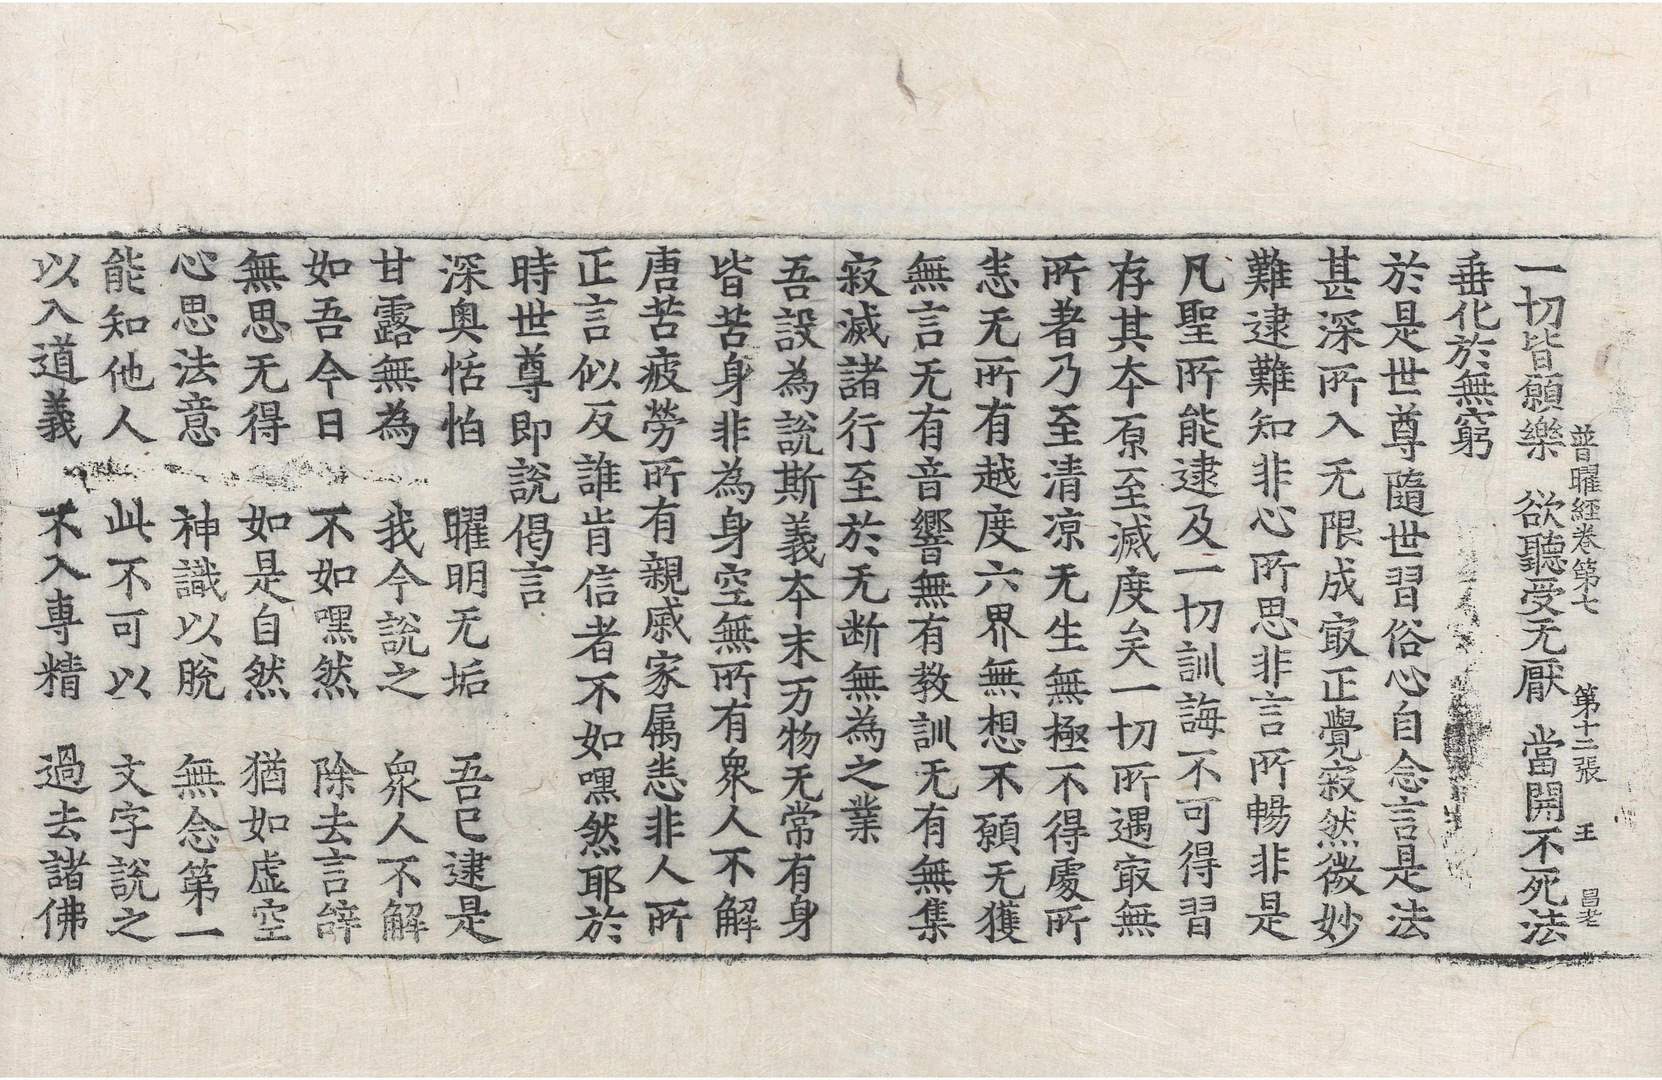 普曜経卷第七 第十二張 王 昌老
一切皆願樂 欲聽受无厭 當開不死法
垂化於無窮
於是世尊隨世習俗心自念言是法
甚深所入无限成㝡正覺寂然微妙
難逮難知非心所思非言所暢非是
凡聖所能逮及一切訓誨不可得習
存其本原至滅度矣一切所遇㝡無
所著乃至清凉无生無極不得處所
恚无所有越度六界無想不願无獲
無言无有音響無有教訓无有無集
寂滅諸行至於无断無為之業
吾設為說斯義本末万物无常有身
皆苦身非為身空無所有衆人不解
唐苦疲勞所有親戚家属恚非人所
正言似反誰肯信者不如嘿然耶於
時世尊即說偈言
深奥恬怕 曜明无垢 吾已逮是
甘露無為 我今說之 衆人不解
如吾今日 不如嘿然 除去言辝
無思无得 如是自然 猶如虛空
心思法意 神識以脫 無念第一
能知他人 此不可以 文字說之
以入道義 不入専精 過去諸佛